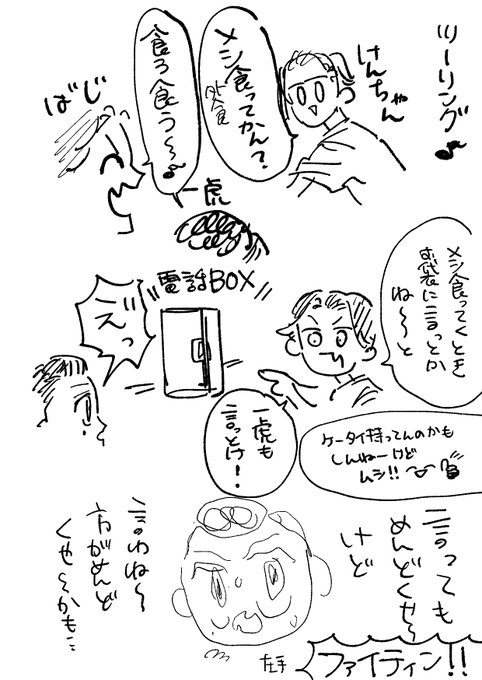 ツーリング♪
けんちゃん
メシ食ってかん?
外食
食う食う〜♪
ばじ
一虎
電話BOX
メシ食ってくとき
お袋に言っとか
ね〜と
えっ
一虎も
言っとけ!
ケータイ持ってんのかも
しんねーけど
ムシ!!
言っても
めんどくせ〜
けど
言わね〜
方がめんど
くせ〜かも…
左手
ファイティン!!